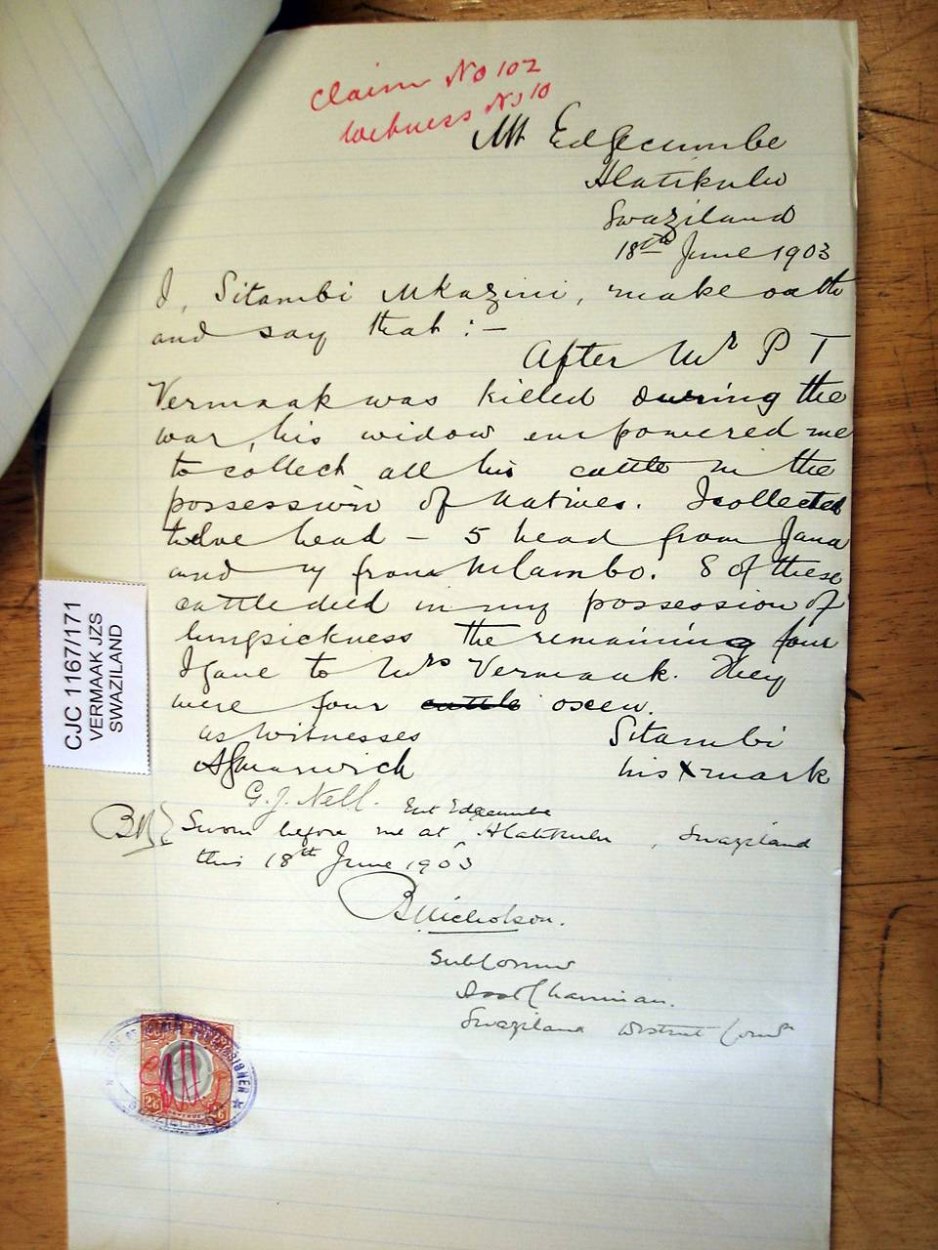 Claim No 102
Witness No 10
Mt Edgecumbe
Hlatikulu
Swaziland
18th June 1903
I, Sitambi Mkazini, make oath
and say that :-
After Mr P T
Vermaak was killed during the
war, his widow empowered me
to collect all his cattle in the
possession of natives. I collected
twelve head - 5 head from Jana
and 7 from Mlambo. 8 of these
cattle died in my possession of
lungsickness the remaining four
I gave to Mrs Vermaak. They
were four cattle oxen.
as witnesses
Sitambi
his X mark
G. J. Nell.
Mt Edgecumbe
BN
Sworn before me at Hlatikulu, Swaziland
this 18th June 1903
B Nicholson.
Sub Commr
Chairman.
Swaziland District Comm
CJC 1167/171
VERMAAK JZS
SWAZILAND
2/6 2/6